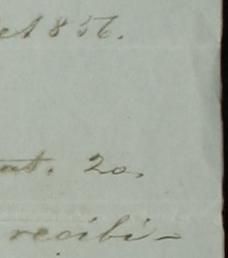 et 1856.
at. 20.
recibi-